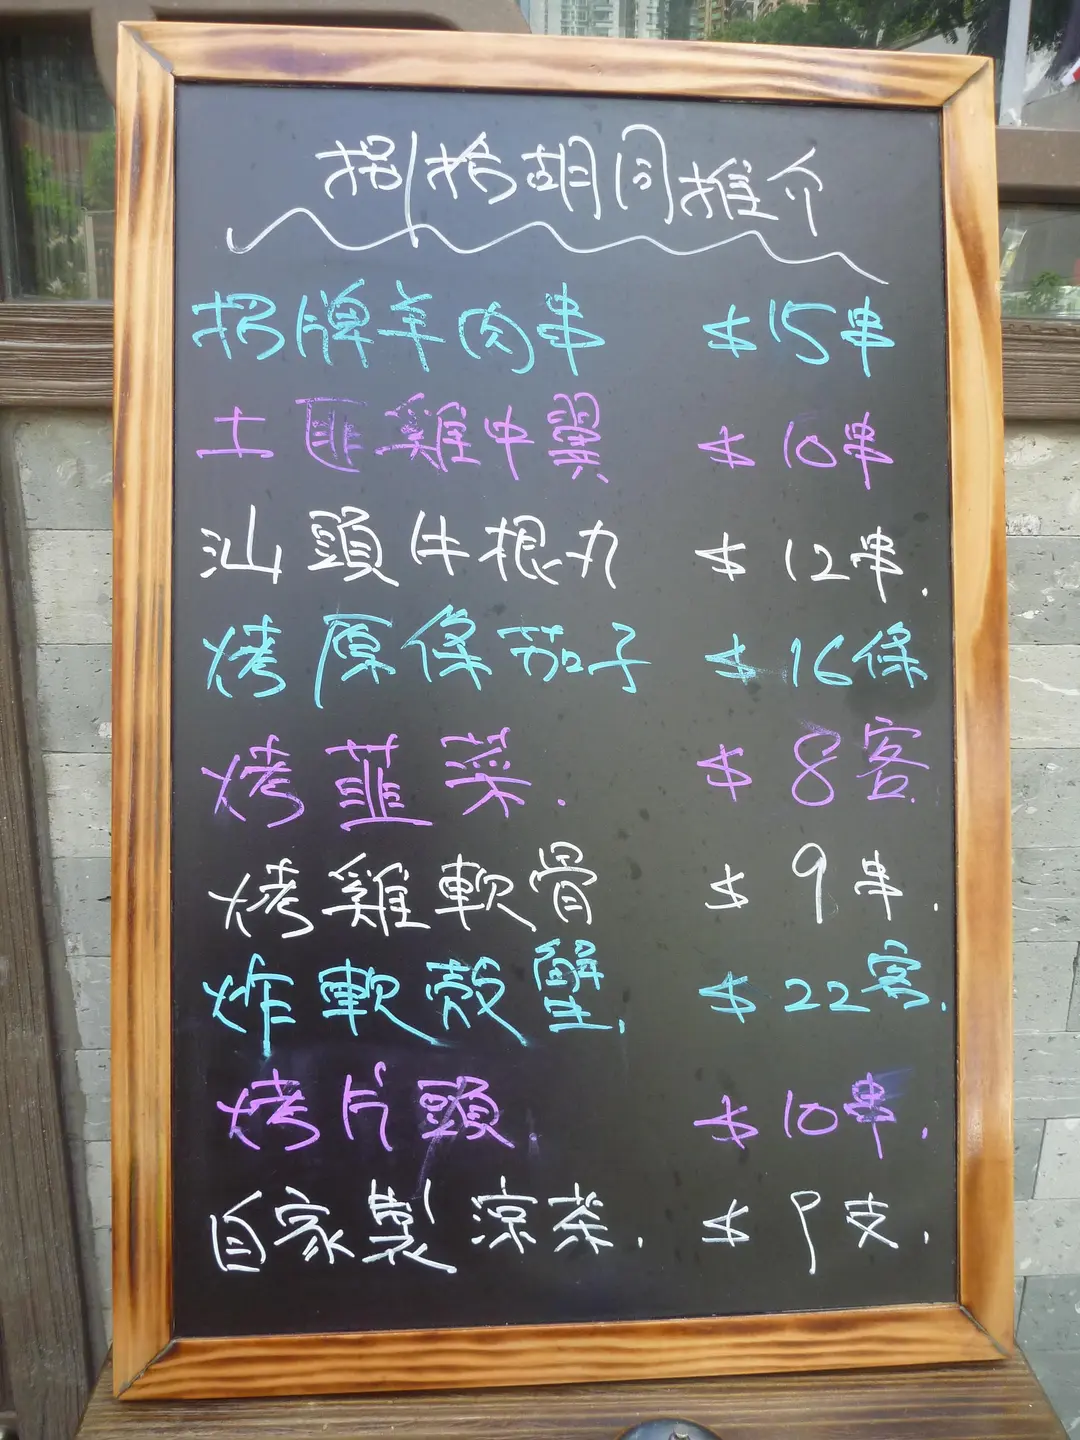 捌拾胡同推介
招牌羊肉串 $15串
土匪雞中翼 $10串
汕頭牛根丸 $12串.
烤原條茄子 $16條
烤韮菜. $8客
烤雞軟骨 $9串.
炸軟殼蟹. $22客.
烤片頭. $10串.
自家製涼茶. $9支.